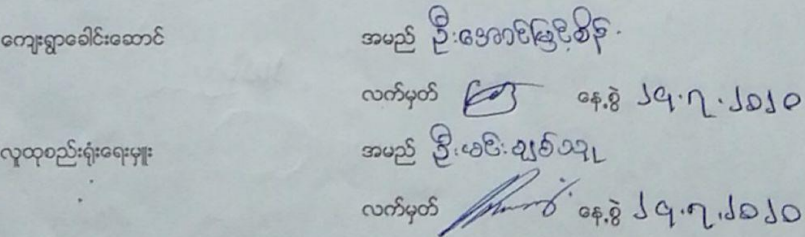 ကျေးရွာခေါင်းဆောင် အမည် ဦးအောင်မြင့်စိန်
လက်မှတ် နေ့စွဲ ၂၄.၇.၂၀၂၀
လူထုစည်းရုံးရေးမှူး အမည် ဦးမင်းချစ်သူ
လက်မှတ် နေ့စွဲ ၂၄.၇.၂၀၂၀